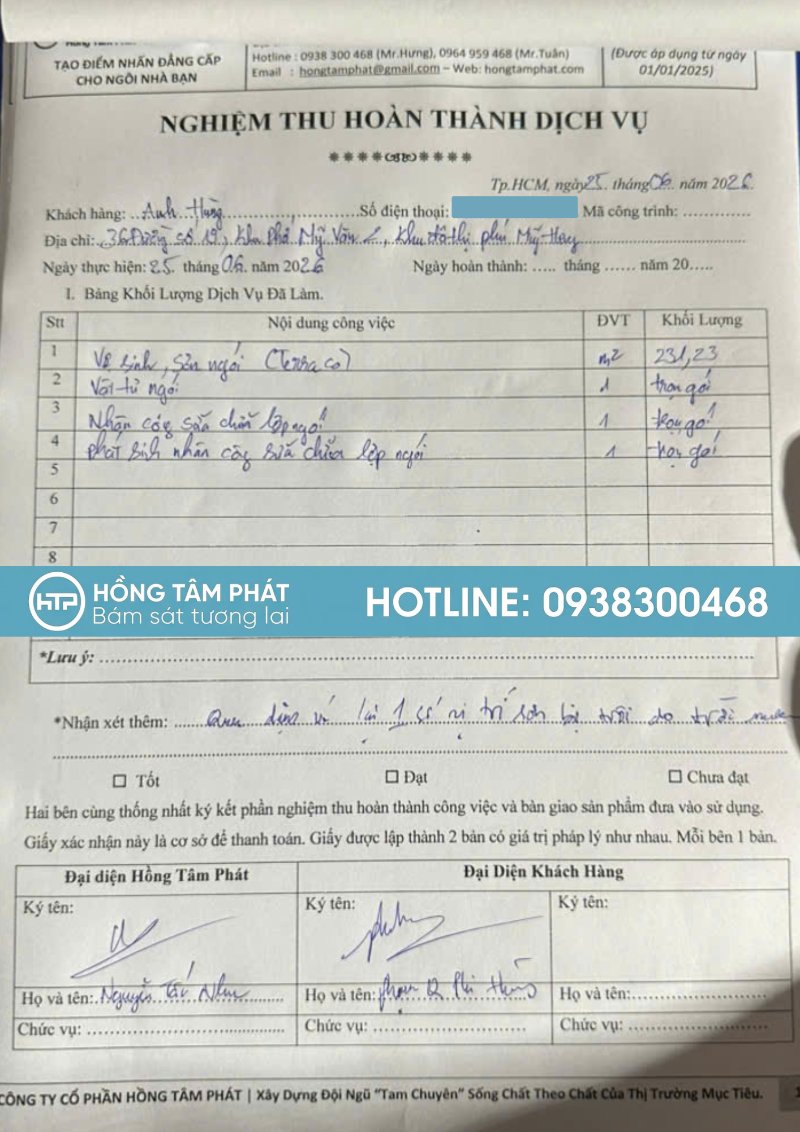 TẠO ĐIỂM NHẤN ĐẲNG CẤP
CHO NGÔI NHÀ BẠN
Hotline : 0938 300 468 (Mr.Hưng), 0964 959 468 (Mr.Tuân)
Email : hongtamphat@gmail.com – Web: hongtamphat.com
(Được áp dụng từ ngày
01/01/2025)
NGHIỆM THU HOÀN THÀNH DỊCH VỤ
Tp.HCM, ngày 25. tháng 06. năm 2026.
Khách hàng: Anh Hùng Số điện thoại: Mã công trình:
Địa chỉ: 36 Đường số 19, Khu Phố Mỹ Văn 2, Khu đô thị phú Mỹ Hưng
Ngày thực hiện: 25. tháng 06. năm 2026 Ngày hoàn thành: ..... tháng ...... năm 20.....
I. Bảng Khối Lượng Dịch Vụ Đã Làm.
Stt Nội dung công việc ĐVT Khối Lượng
1 Vệ sinh, sơn ngói (Terraco) m2 231,23
2 Vật tư ngói 1 trọn gói
3 Nhân công sửa chữa lợp ngói 1 trọn gói
4 phát sinh nhân công sửa chữa lợp ngói 1 trọn gói
5
6
7
8
HTP HỒNG TÂM PHÁT
Bám sát tương lai
HOTLINE: 0938300468
*Lưu ý:
*Nhận xét thêm: lại 1 số vị trí sơn bị trôi do trời mưa
☐ Tốt ☐ Đạt ☐ Chưa đạt
Hai bên cùng thống nhất ký kết phần nghiệm thu hoàn thành công việc và bàn giao sản phẩm đưa vào sử dụng.
Giấy xác nhận này là cơ sở để thanh toán. Giấy được lập thành 2 bản có giá trị pháp lý như nhau. Mỗi bên 1 bản.
Đại diện Hồng Tâm Phát Đại Diện Khách Hàng
Ký tên: Ký tên: Ký tên:
Họ và tên: Nguyễn Tấn Họ và tên: Phi Hùng Họ và tên:
Chức vụ: Chức vụ: Chức vụ:
CÔNG TY CỔ PHẦN HỒNG TÂM PHÁT | Xây Dựng Đội Ngũ “Tam Chuyên” Sống Chất Theo Chất Của Thị Trường Mục Tiêu.